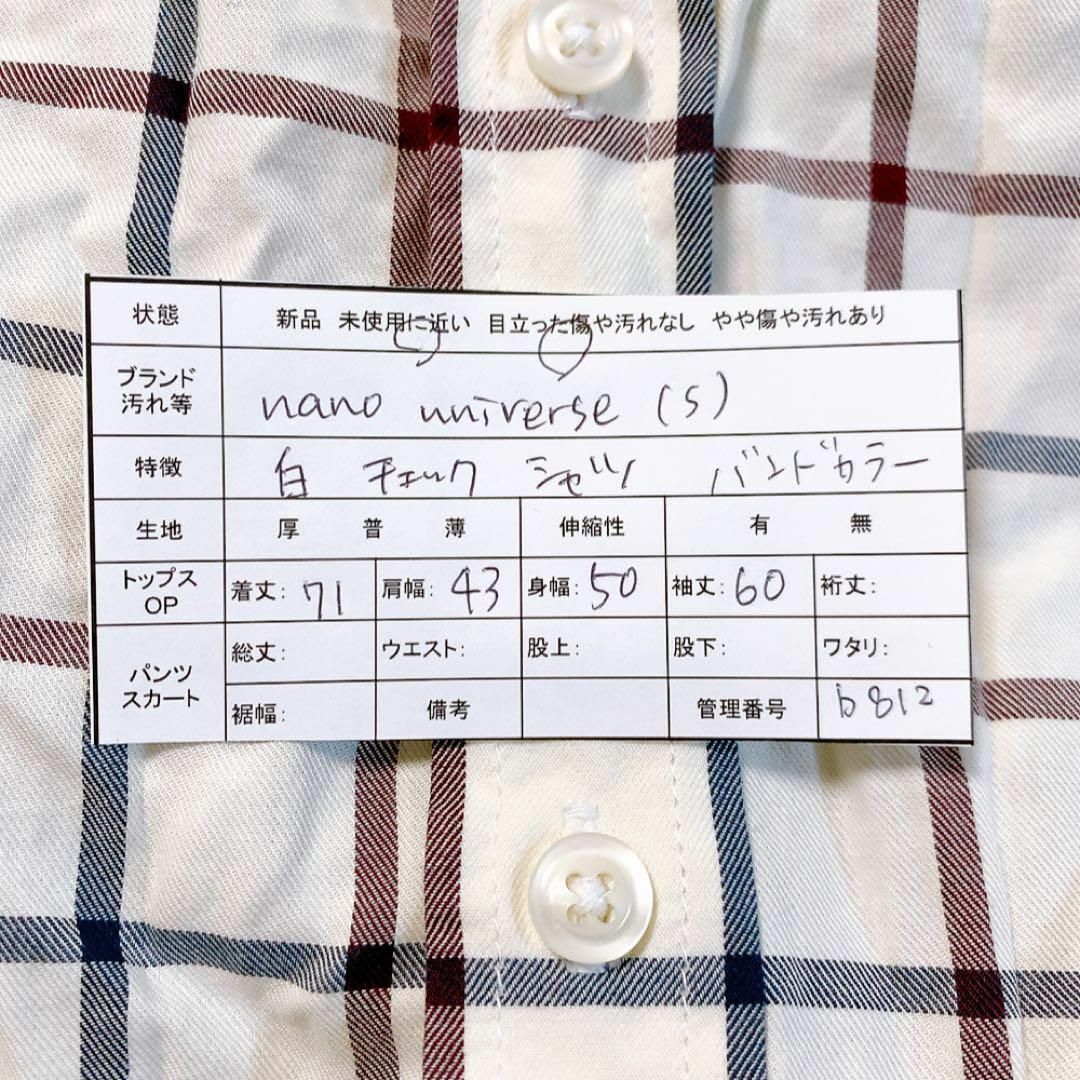 状態 新品 未使用に近い 目立った傷や汚れなし やや傷や汚れあり
ブランド
汚れ等 nano universe (S)
特徴 白 チェック シャツ バンドカラー
生地 厚 普 薄 伸縮性 有 無
トップス
OP 着丈: 71 肩幅: 43 身幅: 50 袖丈: 60 裄丈:
パンツ
スカート 総丈: ウエスト: 股上: 股下: ワタリ:
裾幅: 備考 管理番号 b812